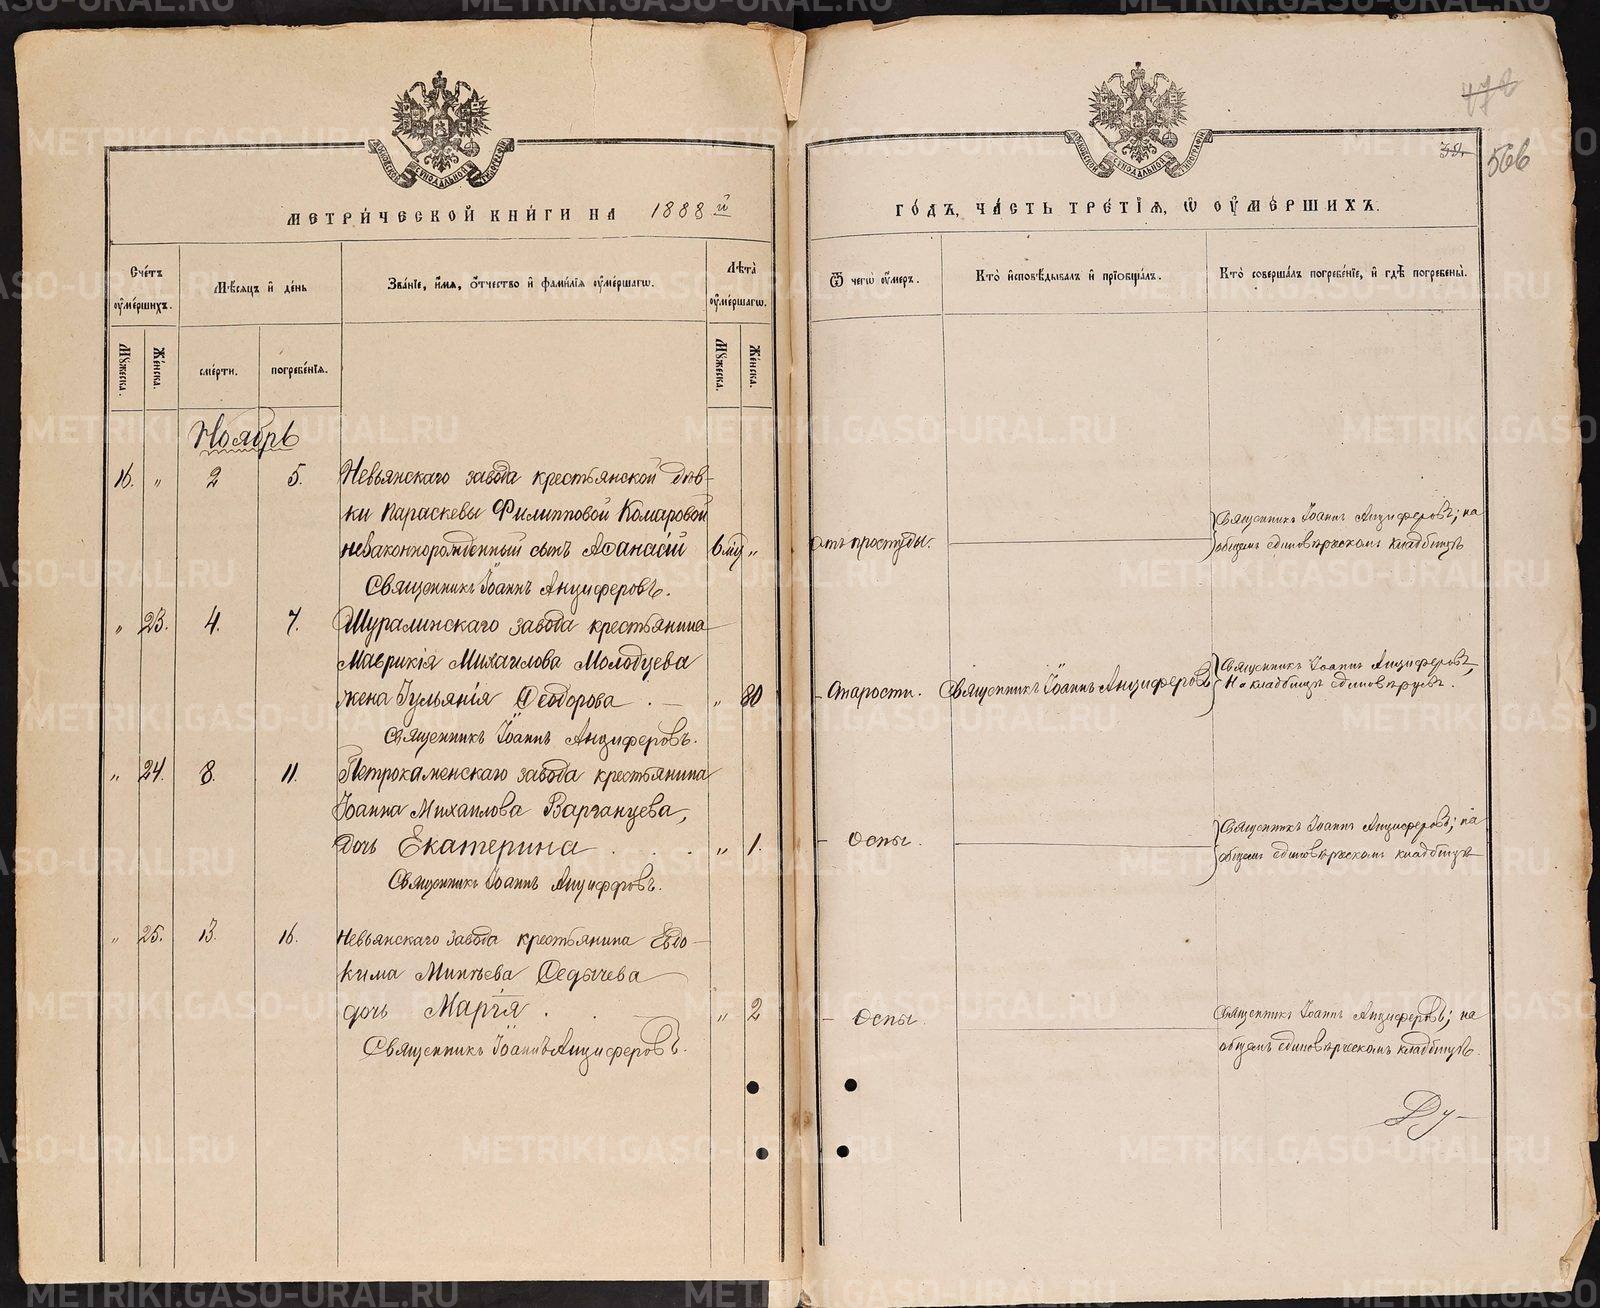 МЕТРИ́ЧЕСКОЙ КНИ́ГИ НА 1888 й
Сче́тъ оу҆ме́ршихъ.
Мѣ́сяцъ и҆ де́нь
Зва́нїе, и҆́мѧ, ѻ҆́тчество и҆ фами́лїѧ оу҆ме́ршагѡ.
Лѣта̀ оу҆ме́ршагѡ.
Мꙋ́жеска.
Же́нска.
сме́рти.
погребе́нїѧ.
Мꙋ́жеска.
Же́нска.
Ноябрь
16. „ 2 5. Невьянскаго завода крестьянской дѣв-
ки Параскевы Филипповой Комаровой
незаконнорожденный сынъ Аѳанасій „
Священникъ Іоаннъ Анциферовъ.
„ 23. 4. 7. Шуралинскаго завода крестьянина
Маврикія Михаилова Молодцева
жена Іульянія Ѳеодорова . — „ 80
Священникъ Іоаннъ Анциферовъ.
„ 24. 8. 11. Петрокаменскаго завода крестьянина
Іоанна Михаилова Варганцева,
дочь Екатерина . . . „ 1.
Священникъ Іоаннъ Анциферовъ.
„ 25. 13. 16. Невьянскаго завода крестьянина Евдо-
кима Минѣева Ѳедычева
дочь Марія . . „ 2
Священникъ Іоаннъ Анциферовъ.
ГО́ДЪ, ЧА́СТЬ ТРЕ́ТЇѦ, Ѡ҆ ОУ҆МЕ́РШИХЪ.
39.
566
Ѿ чегѡ̀ оу҆́меръ.
Кто̀ и҆сповѣ́дывалъ и҆ прїѡбща́лъ.
Кто̀ соверша́лъ погребе́нїе, и҆ гдѣ̀ погребены̀.
отъ простуды.
Священникъ Іоаннъ Анциферовъ; на
общемъ единовѣрческомъ кладбищѣ
- Старости. Священникъ Іоаннъ Анциферовъ
Священникъ Іоаннъ Анциферовъ,
На кладбищѣ
- Оспы.
Священникъ Іоаннъ Анциферовъ; на
общемъ единовѣрческомъ кладбищѣ
- Оспы.
Священникъ Іоаннъ Анциферовъ; на
общемъ единовѣрческомъ кладбищѣ.
Ду-
METRIKI.GASO-URAL.RU